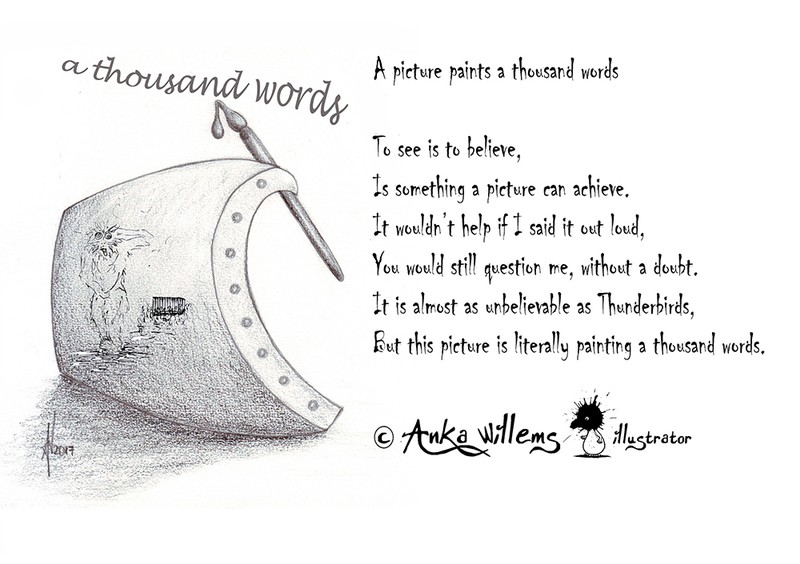 a thousand words
A picture paints a thousand words
To see is to believe,
Is something a picture can achieve.
It wouldn't help if I said it out loud,
You would still question me, without a doubt.
It is almost as unbelievable as Thunderbirds,
But this picture is literally painting a thousand words.
© Anka Willems illustrator
2017